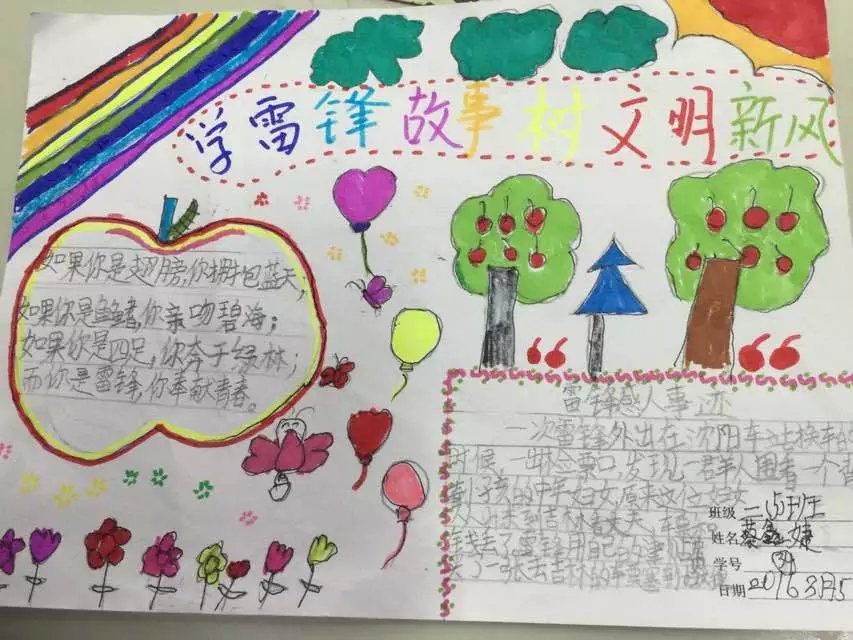 学雷锋故事树文明新风
如果你是翅膀,你拥包蓝天,
如果你是鱼鳍,你亲吻碧海;
如果你是四足,你奔于绿林;
而你是雷锋,你奉献青春。
雷锋感人事迹
一次雷锋外出在沈阳车站换车的
时候,一出检票口,发现一群人围看一个背
小孩的中年妇女,原来这位妇女
从 去吉林看丈夫,车
钱丢了。雷锋用自己
买了一张去吉林的车票塞到
班级 二(5)班
姓名 蔡鑫婕
学号
日期 2016 3月5